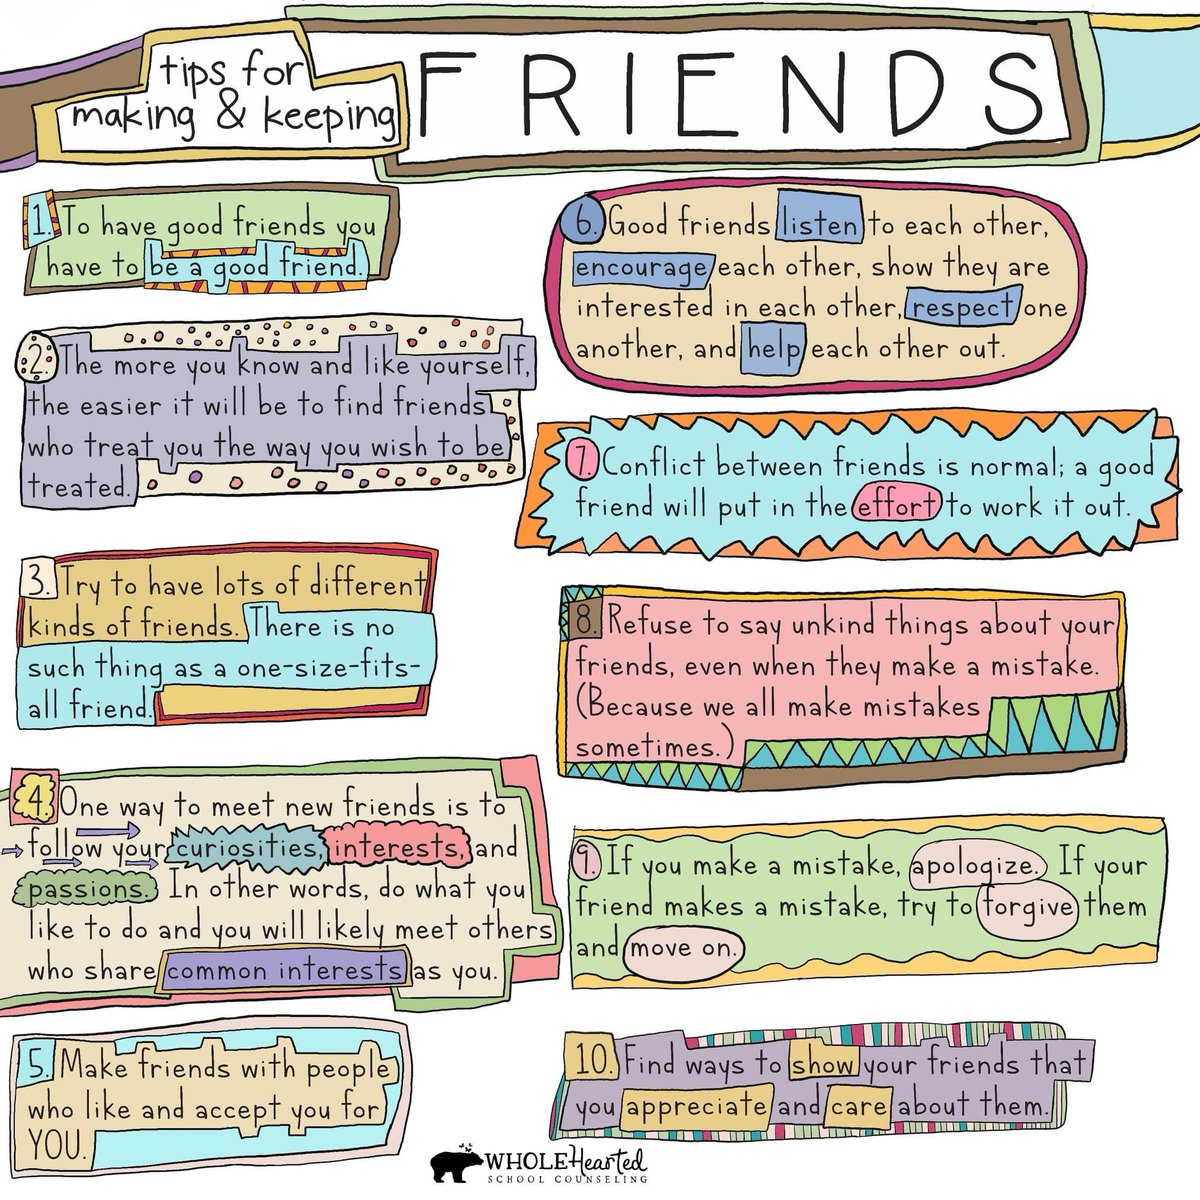 tips for
making & keeping
FRIENDS
1. To have good friends you
have to be a good friend.
2. The more you know and like yourself,
the easier it will be to find friends
who treat you the way you wish to be
treated.
3. Try to have lots of different
kinds of friends. There is no
such thing as a one-size-fits-
all friend.
4. One way to meet new friends is to
follow your curiosities, interests, and
passions. In other words, do what you
like to do and you will likely meet others
who share common interests as you.
5. Make friends with people
who like and accept you for
YOU.
6. Good friends listen to each other,
encourage each other, show they are
interested in each other, respect one
another, and help each other out.
7. Conflict between friends is normal; a good
friend will put in the effort to work it out.
8. Refuse to say unkind things about your
friends, even when they make a mistake.
(Because we all make mistakes
sometimes.)
9. If you make a mistake, apologize. If your
friend makes a mistake, try to forgive them
and move on.
10. Find ways to show your friends that
you appreciate and care about them.
WHOLEHearted
SCHOOL COUNSELING